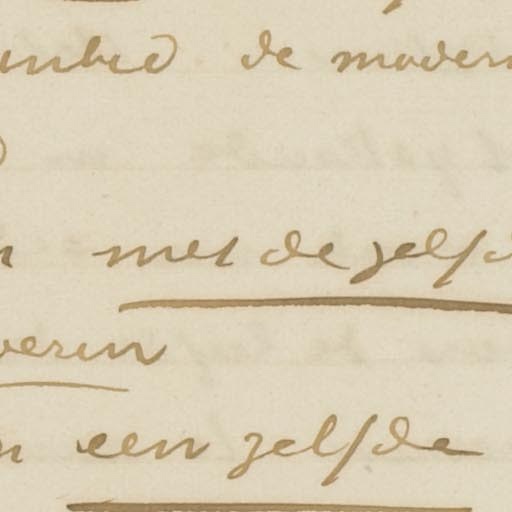 de modern
met de zelfd
veren
een zelfde